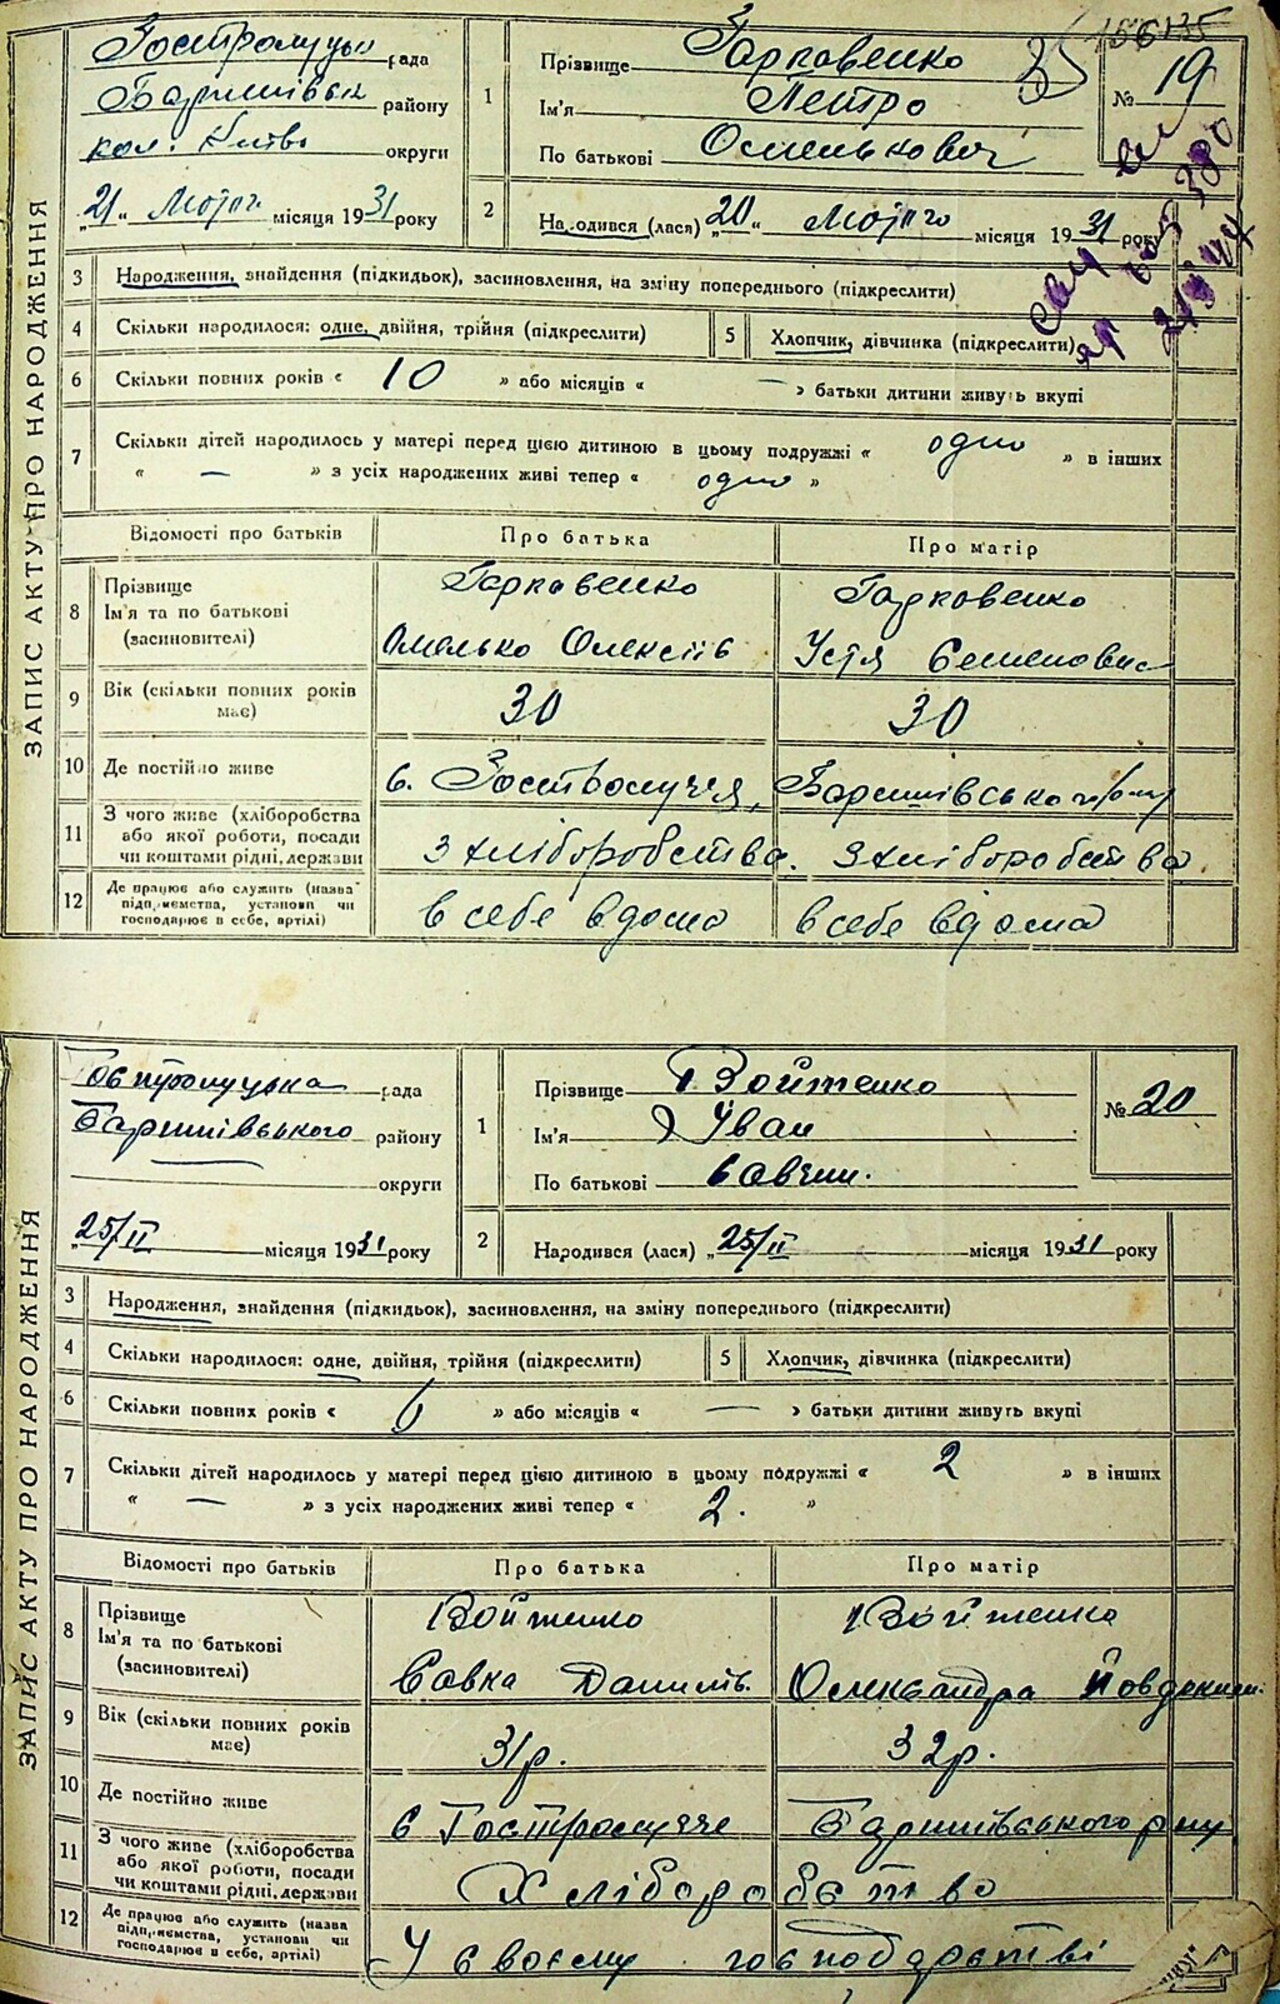 ЗАПИС АКТУ ПРО НАРОДЖЕННЯ
рада
району
округи
„21“ місяця 1931 року
1
Прізвище Гарковенко
Ім'я Петро
По батькові
35
№ 19
2
Народився (лася) „20“ місяця 1931 року
3 Народження, знайдення (підкидьок), засиновлення, на зміну попереднього (підкреслити)
4 Скільки народилося: одне, двійня, трійня (підкреслити) 5 Хлопчик, дівчинка (підкреслити)
6 Скільки повних років « 10 » або місяців « — » батьки дитини живуть вкупі
7 Скільки дітей народилось у матері перед цією дитиною в цьому подружжі « одно » в інших
« — » з усіх народжених живі тепер « одно »
Відомості про батьків Про батька Про матір
8 Прізвище Гарковенко Гарковенко
Ім'я та по батькові
(засиновителі) Омелько Олексіїв Устя Семеновна
9 Вік (скільки повних років має) 30 30
10 Де постійно живе с. Гостролуччя, Баришівського р/ону
11 З чого живе (хліборобства або якої роботи, посади чи коштами рідні, держави З хліборобства. З хліборобства
12 Де працює або служить (назва підприємства, установи чи господарює в себе, артілі) в себе вдома в себе вдома
ЗАПИС АКТУ ПРО НАРОДЖЕННЯ
Гостролуцька рада
Баришівського району
— округи
„25/II місяця 1931 року
1
Прізвище Войтенко
Ім'я Іван
По батькові Савчин.
№ 20
2
Народився (лася) „25/II місяця 1931 року
3 Народження, знайдення (підкидьок), засиновлення, на зміну попереднього (підкреслити)
4 Скільки народилося: одне, двійня, трійня (підкреслити) 5 Хлопчик, дівчинка (підкреслити)
6 Скільки повних років « 6 » або місяців « — » батьки дитини живуть вкупі
7 Скільки дітей народилось у матері перед цією дитиною в цьому подружжі « 2 » в інших
« — » з усіх народжених живі тепер « 2. »
Відомості про батьків Про батька Про матір
8 Прізвище Войтенко Войтенко
Ім'я та по батькові
(засиновителі) Савка Данилів. Олександра
9 Вік (скільки повних років має) 31р. 32р.
10 Де постійно живе с Гостролучче Баришівського рну
11 З чого живе (хліборобства або якої роботи, посади чи коштами рідні, держави Хліборобство
12 Де працює або служить (назва підприємства, установи чи господарює в себе, артілі) У своєму господарстві